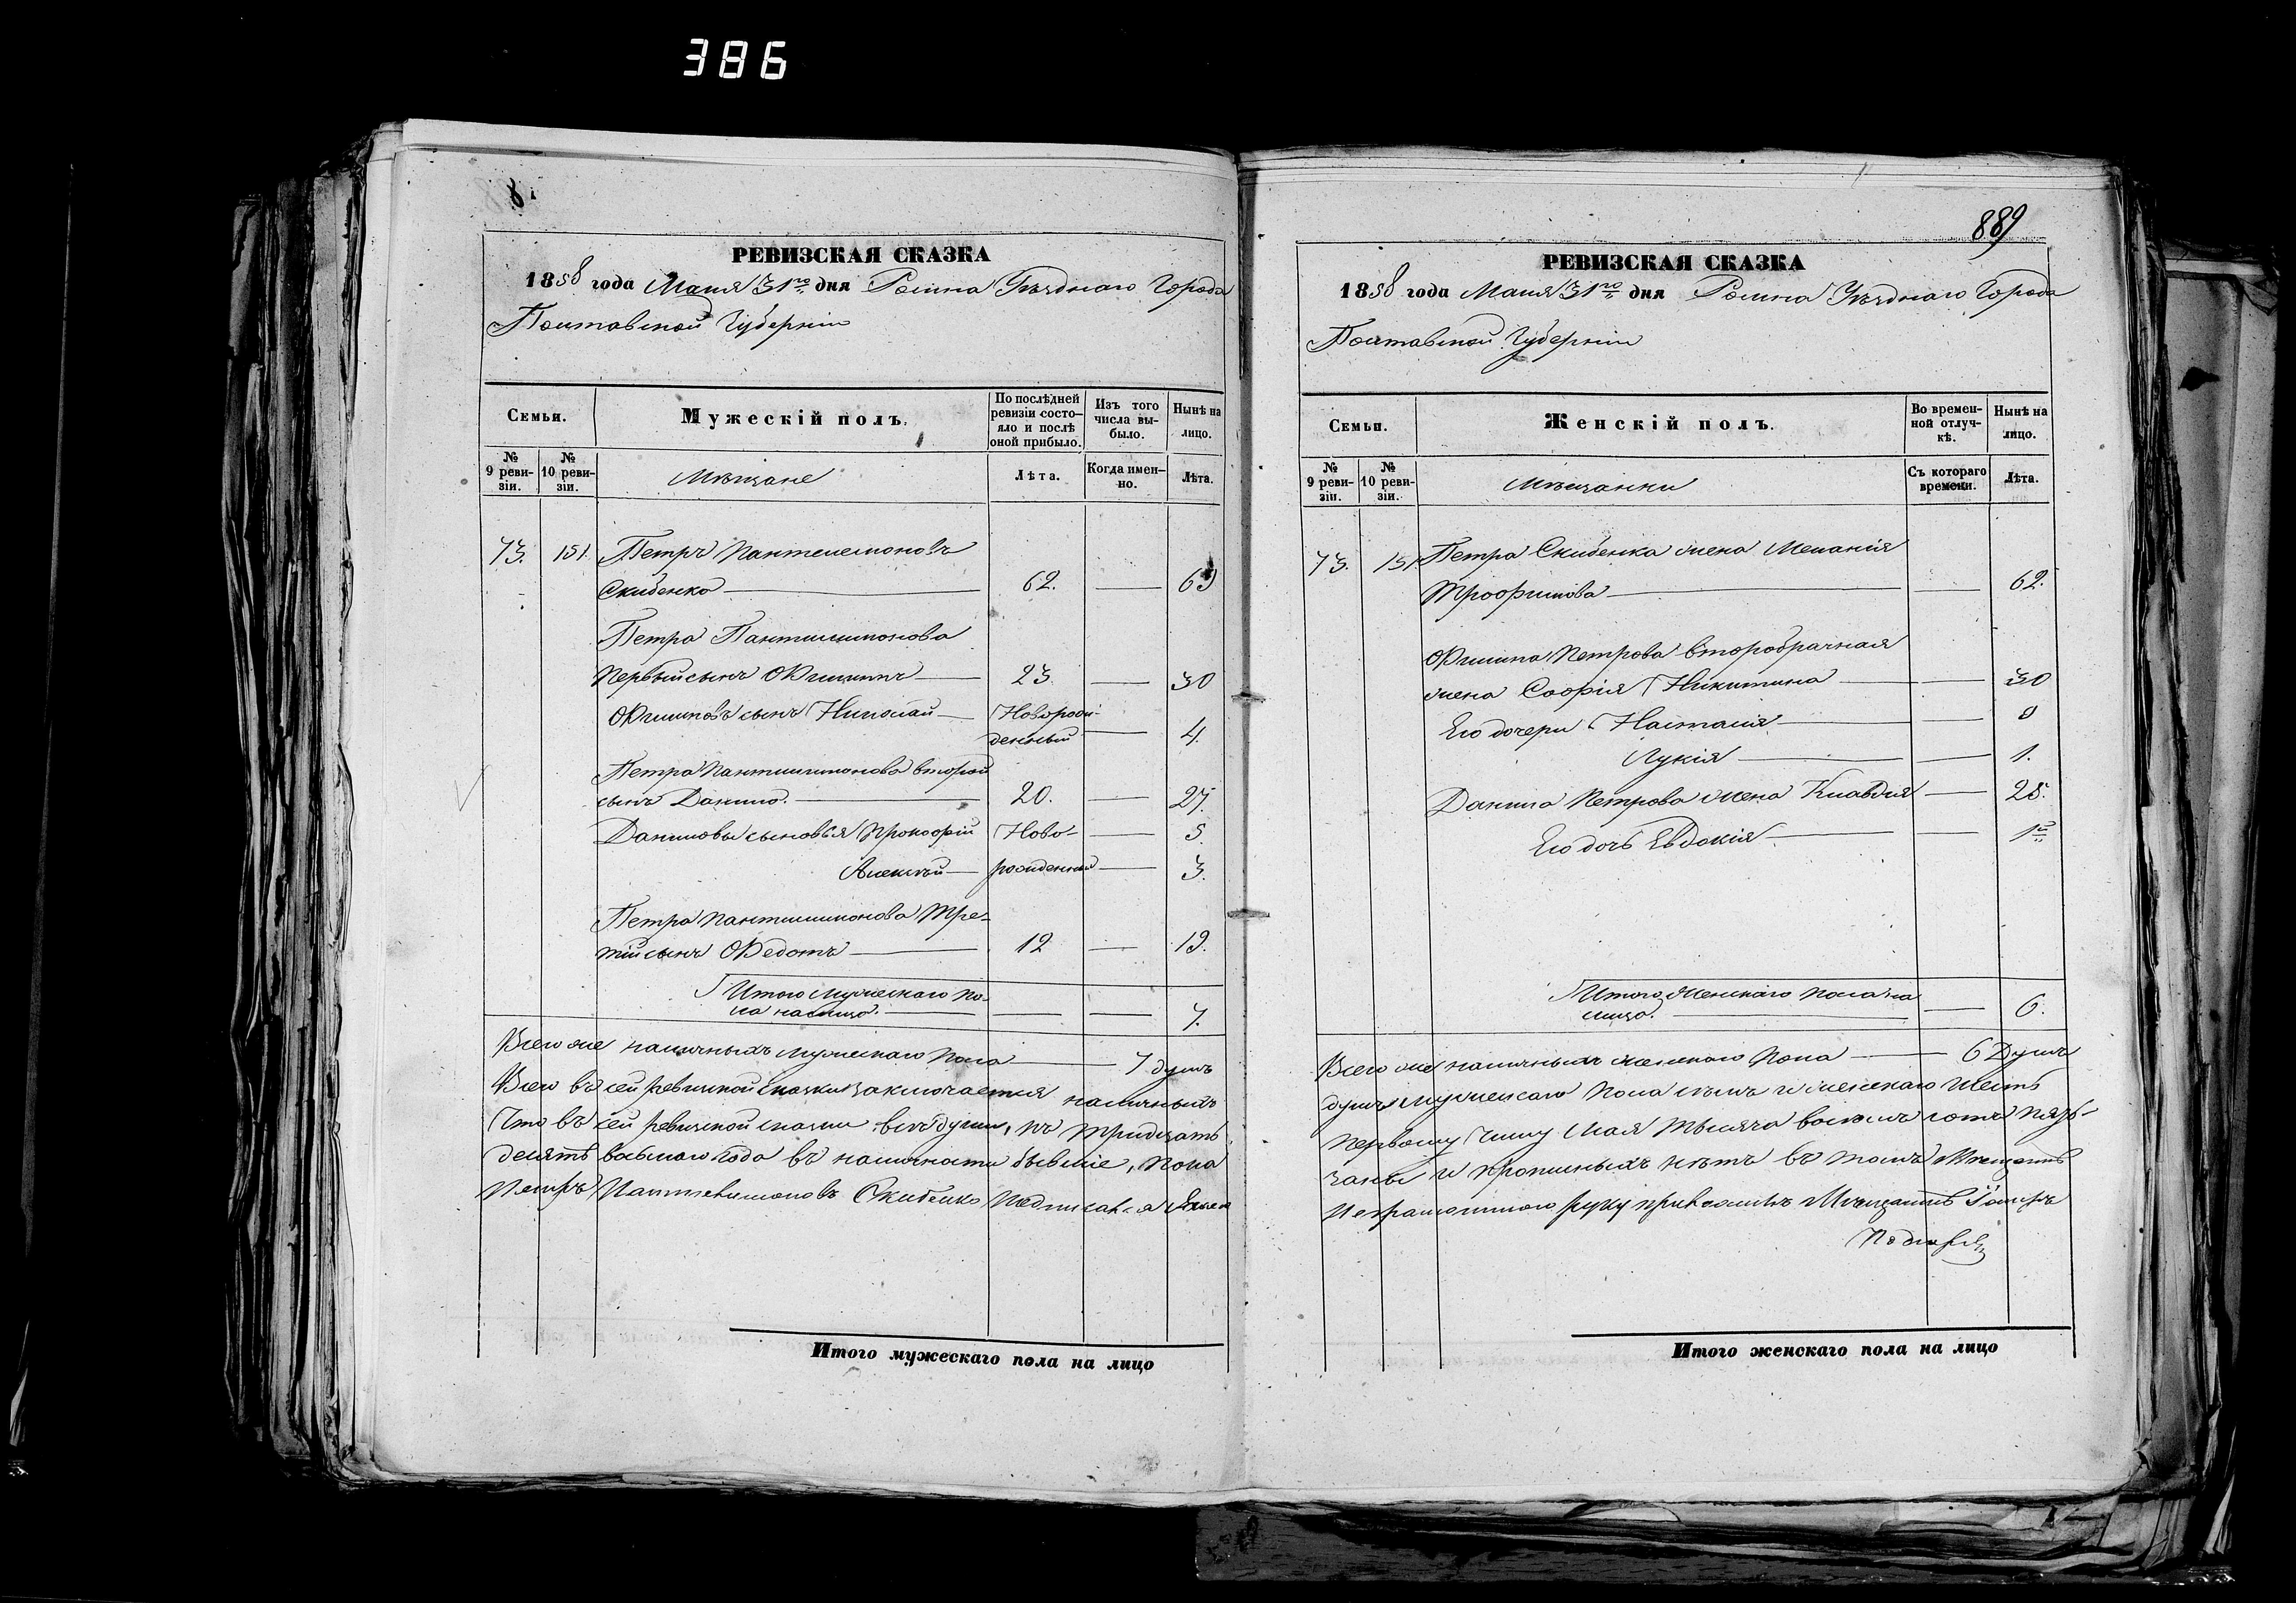 386
8
РЕВИЗСКАЯ СКАЗКА
1858 года Маия 31го дня Ромна Уѣзднаго Города
Полтавской Губерніи
Семьи.
Мужескій полъ.
По послѣдней ревизіи состо-
яло и послѣ оной прибыло.
Изъ того числа вы-
было.
Нынѣ на лицо.
№ 9 реви-
зіи.
№ 10 реви-
зіи.
Мѣщане
Лѣта.
Когда имен-
но.
Лѣта.
73. 151. Петръ Пантелемоновъ
Скибенко 62. 69
Петра Пантилимонова
Первый сынъ Филипъ 23. 30
Филиповъ сынъ Николай Новорож-
денный 4.
Петра Пантилимонова второй
сынъ Данило. 20. 27.
Даниловы сыновья Прокофій Ново- 5.
Алексѣй рожденный 3.
Петра Пантилимонова Тре-
тій сынъ Федотъ 12 19.
Итого мужескаго по-
ла на лицо. 7.
Всего же наличныхъ мужескаго пола 7 душъ
Всего въ сей ревизкой сказки заключается наличныхъ
Что въ сей ревизкой сказки всѣ души, къ тридцать
десятъ восьмого года въ наличности бывшіе, пока
Петръ Пантелимоновъ Скибенко
Итого мужескаго пола на лицо
889
РЕВИЗСКАЯ СКАЗКА
1858 года Маия 31го дня Ромна Уѣзднаго Города
Полтавской Губерніи
Семьи.
Женскій полъ.
Во времен-
ной отлуч-
кѣ.
Нынѣ на лицо.
№ 9 реви-
зіи.
№ 10 реви-
зіи.
Мѣщанки
Съ котораго времени.
Лѣта.
73. 151. Петра Скибенка жена Меланія
Трофимова 62.
Филипа Петрова второбрачная
жена Софія Никитина 30
Его дочери Настасія 9
Лукія 1.
Данила Петрова жена Клавдія 25.
Его дочь Евдокія 1
Итого Женскаго пола на
лицо. 6.
Всего же наличныхъ женскаго пола 6 Душъ
душъ мужескаго пола семъ и женскаго шесть
Первому числу Мая тысяча восемъ сотъ пять-
заны и прописныхъ нѣтъ въ томъ Мѣщанинъ
Неграмотного руку приложилъ Мѣщанинъ
Итого женскаго пола на лицо